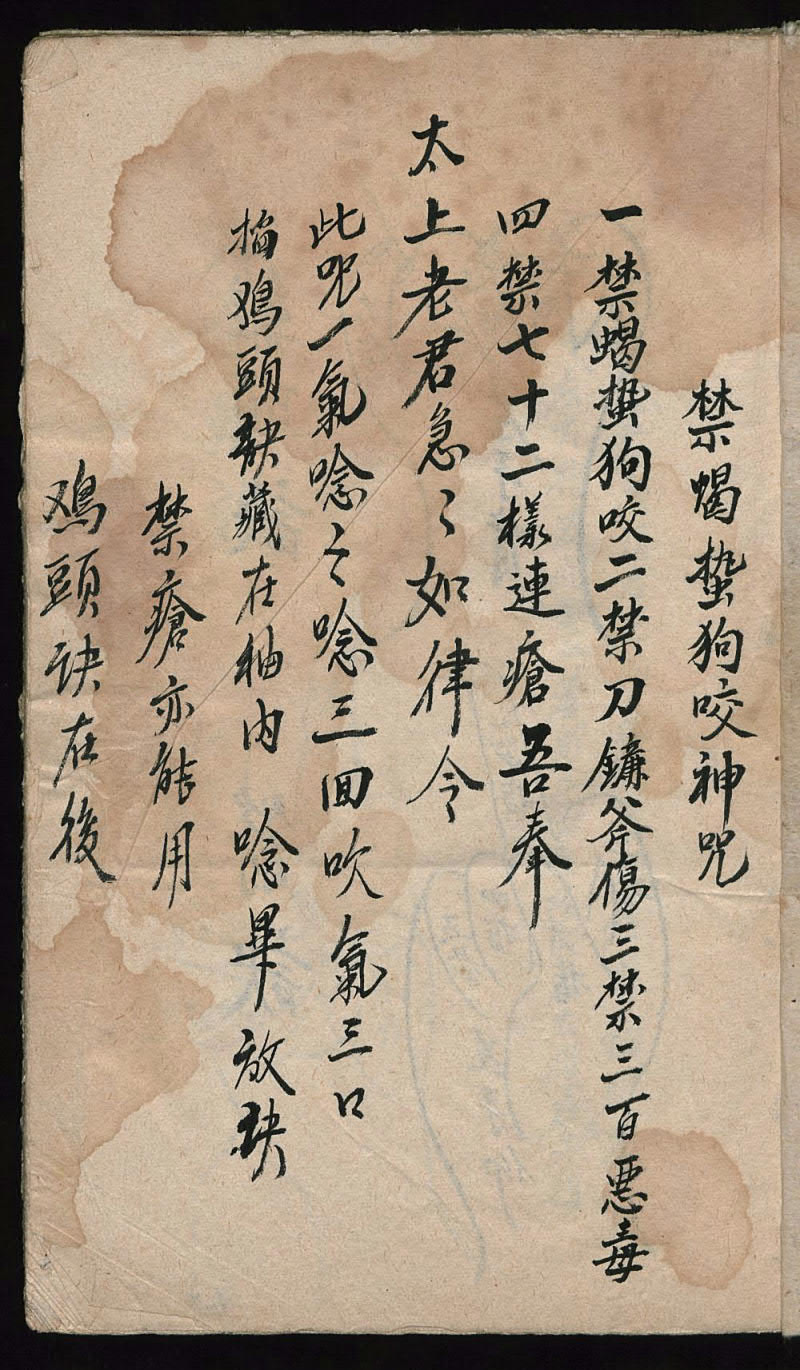 禁蝎蜇狗咬神咒
一禁蝎蜇狗咬二禁刀鐮斧傷三禁三百惡毒
四禁七十二樣連瘡吾奉
太上老君急〻如律令
此咒一氣唸〻唸三回吹氣三口
掐鸡頭訣藏在袖内 唸畢放訣
禁瘡亦能用
鸡頭訣在後